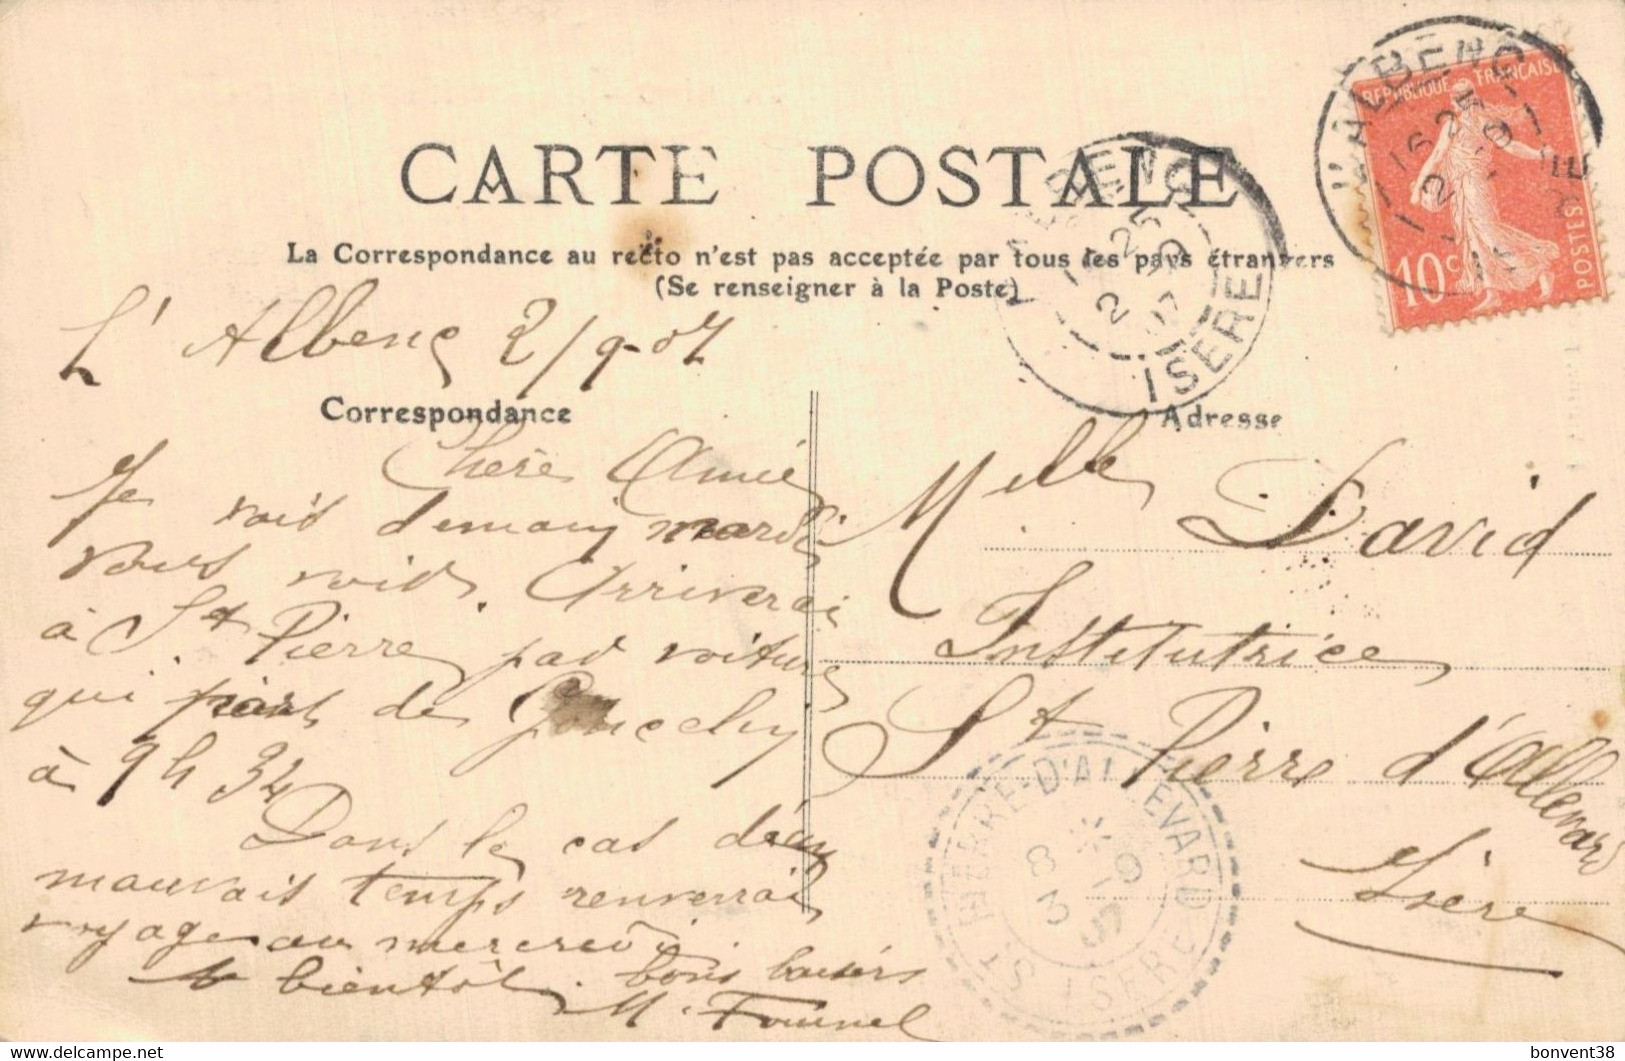 CARTE POSTALE
La Correspondance au recto n'est pas acceptée par tous les pays étrangers
(Se renseigner à la Poste)
RÉPUBLIQUE FRANÇAISE
10c
POSTES
L'ALBENC
16 25
2 -9
L'ALBENC
25
2 -9
07
ISERE
L' Albenc 2/9-07
Correspondance
Chère Amie
Je vais demain mardi
vous voir. Arriverai
à St Pierre par voiture
qui part de
à 9h 34
Dans le cas de
mauvais temps renverrai
voyage au mercredi
bientôt. bons baisers
M. Fournel
Adresse
Melle David
Institutrice
St Pierre d'Allevard
Isère
ST PIERRE-D'ALLEVARD
8
3 -9
07
ISERE
bonvent38